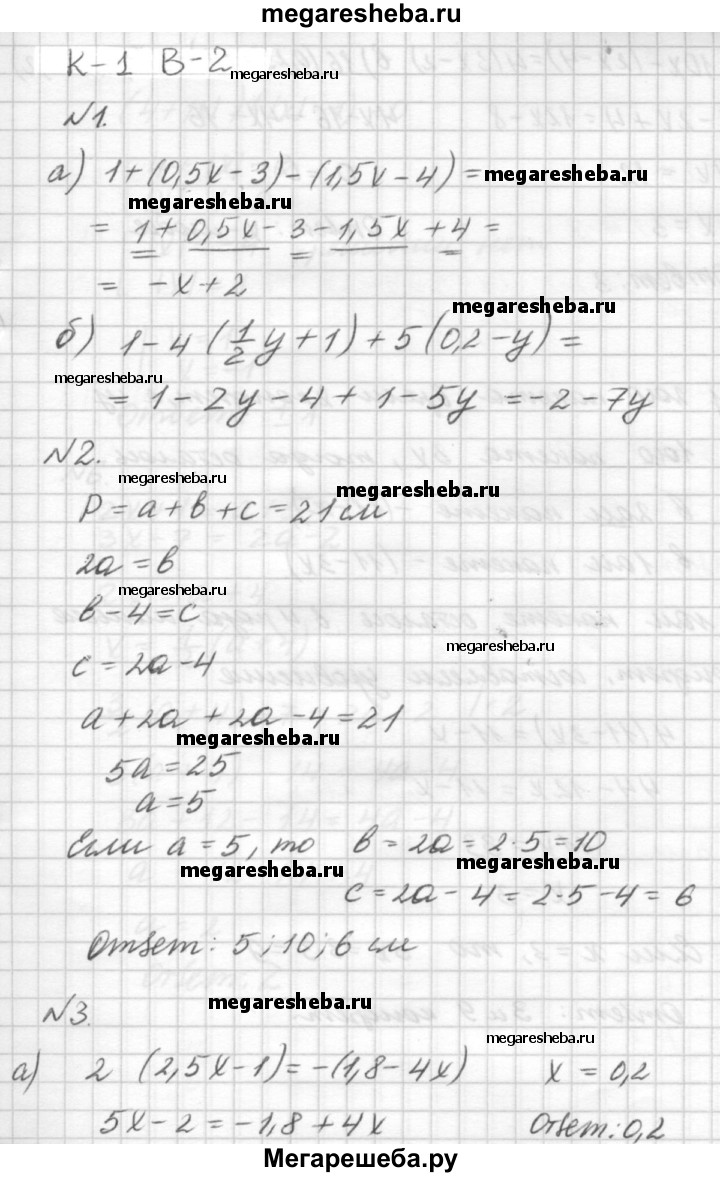 megaresheba.ru
К-1 В-2 megaresheba.ru
№1.
а) 1+(0,5x-3)-(1,5x-4)= megaresheba.ru
megaresheba.ru
= 1+0,5x-3-1,5x+4=
= -x+2
megaresheba.ru
б) 1-4(1/2y+1)+5(0,2-y)=
megaresheba.ru
= 1-2y-4+1-5y=-2-7y
№2.
megaresheba.ru
megaresheba.ru
P=a+b+c=21см
2a=b
megaresheba.ru
b-4=c
megaresheba.ru
c=2a-4
a+2a+2a-4=21
megaresheba.ru
5a=25
a=5
Если a=5, то b=2a=2·5=10
megaresheba.ru megaresheba.ru
c=2a-4=2·5-4=6
Ответ: 5;10;6 см
megaresheba.ru
№3.
megaresheba.ru
а) 2 (2,5x-1)=-(1,8-4x) x=0,2
5x-2=-1,8+4x Ответ: 0,2
Мегарешеба.ру